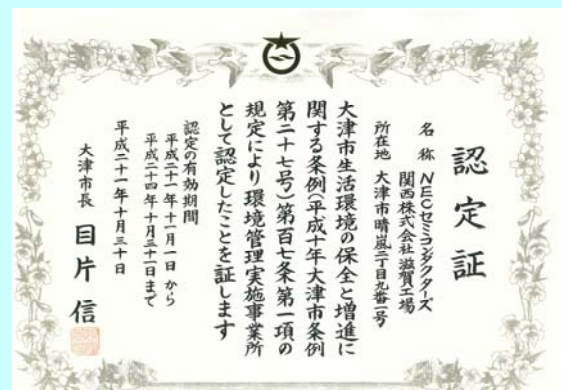 認定証
名称 NECセミコンダクターズ
関西株式会社滋賀工場
所在地 大津市晴嵐二丁目九番一号
大津市生活環境の保全と増進に
関する条例(平成十年大津市条例
第二十七号)第百七条第一項の
規定により環境管理実施事業所
として認定したことを証します
認定の有効期間
平成二十一年十一月一日から
平成二十四年十月三十一日まで
平成二十一年十月三十日
大津市長 目片信